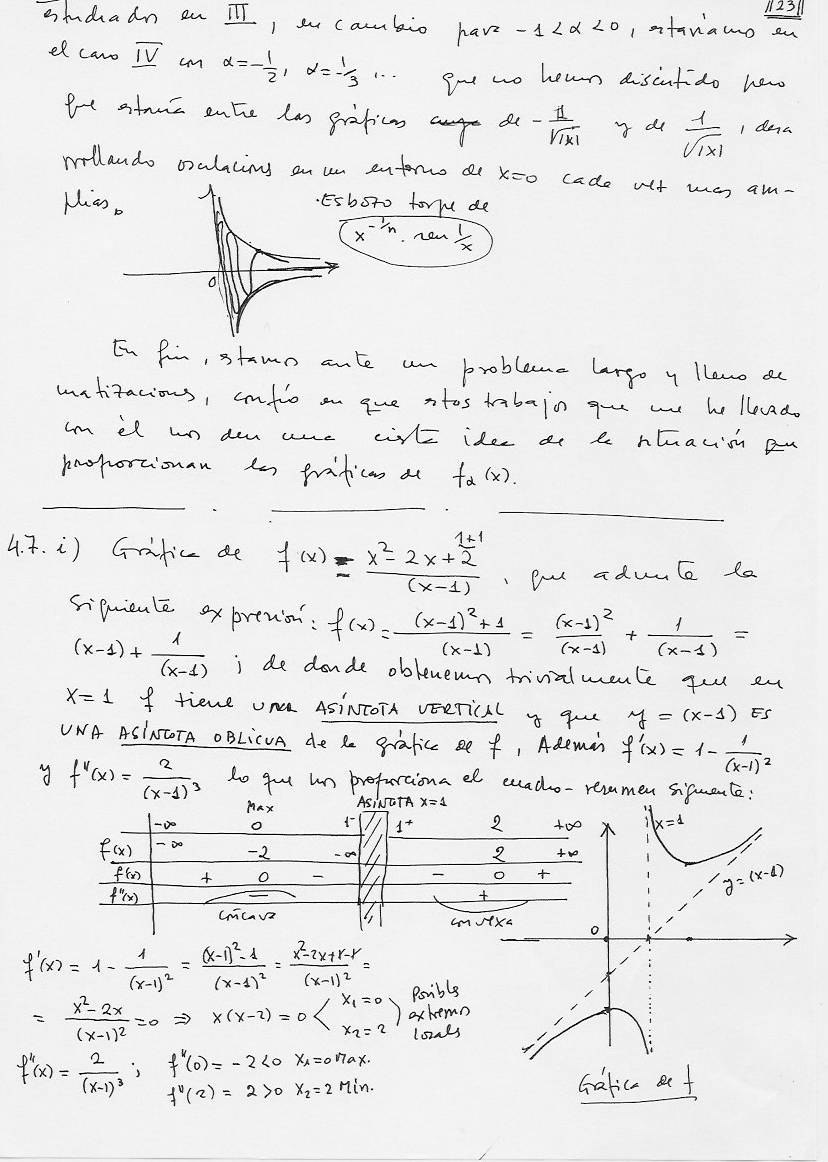 ||23||
estudiados en III, en cambio para -1<α<0, estaríamos en
el caso IV con α=-1/2, α=-1/3, ... que no hemos discutido pero
que estaría entre las gráficas de -1/√|x| y de 1/√|x|, desa
rrollando oscilacions en un entorno de x=0 cada vez mas am-
plias.
·Esbozo torpe de
x^(-1/n) · sen 1/x
0
En fin, estamos ante un problema largo y lleno de
matizaciones, confío en que estos trabajos que me he llevado
con él nos den una cierta idea de la situación que
proporcionan las gráficas de fα(x).
4.7. i) Gráfica de f(x) = (x²-2x+2)/(x-1), que admite la
1+1
siguiente expresión: f(x) = ((x-1)²+1)/(x-1) = (x-1)²/(x-1) + 1/(x-1) =
(x-1) + 1/(x-1) ; de donde obtenemos trivialmente que en
x=1 f tiene UNA ASÍNTOTA VERTICAL y que y=(x-1) ES
UNA ASÍNTOTA OBLICUA de la gráfica de f, Además f'(x) = 1 - 1/(x-1)²
y f''(x) = 2/(x-1)³ lo que nos proporciona el cuadro-resumen siguiente:
Max ASINTOTA x=1
-∞ 0 1⁻ 1⁺ 2 +∞
f(x) -∞ -2 -∞ 2 +∞
f'(x) + 0 - - 0 +
f''(x) - +
cóncava convexa
x=1
y=(x-1)
0
f'(x) = 1 - 1/(x-1)² = ((x-1)²-1)/(x-1)² = (x²-2x+1-1)/(x-1)² =
= (x²-2x)/(x-1)² = 0 ⇒ x(x-2) = 0 < x₁=0 x₂=2 > Posibles extremos locals
f''(x) = 2/(x-1)³ ; f''(0) = -2<0 x₁=0 Max.
f''(2) = 2>0 x₂=2 Min.
Gráfica de f